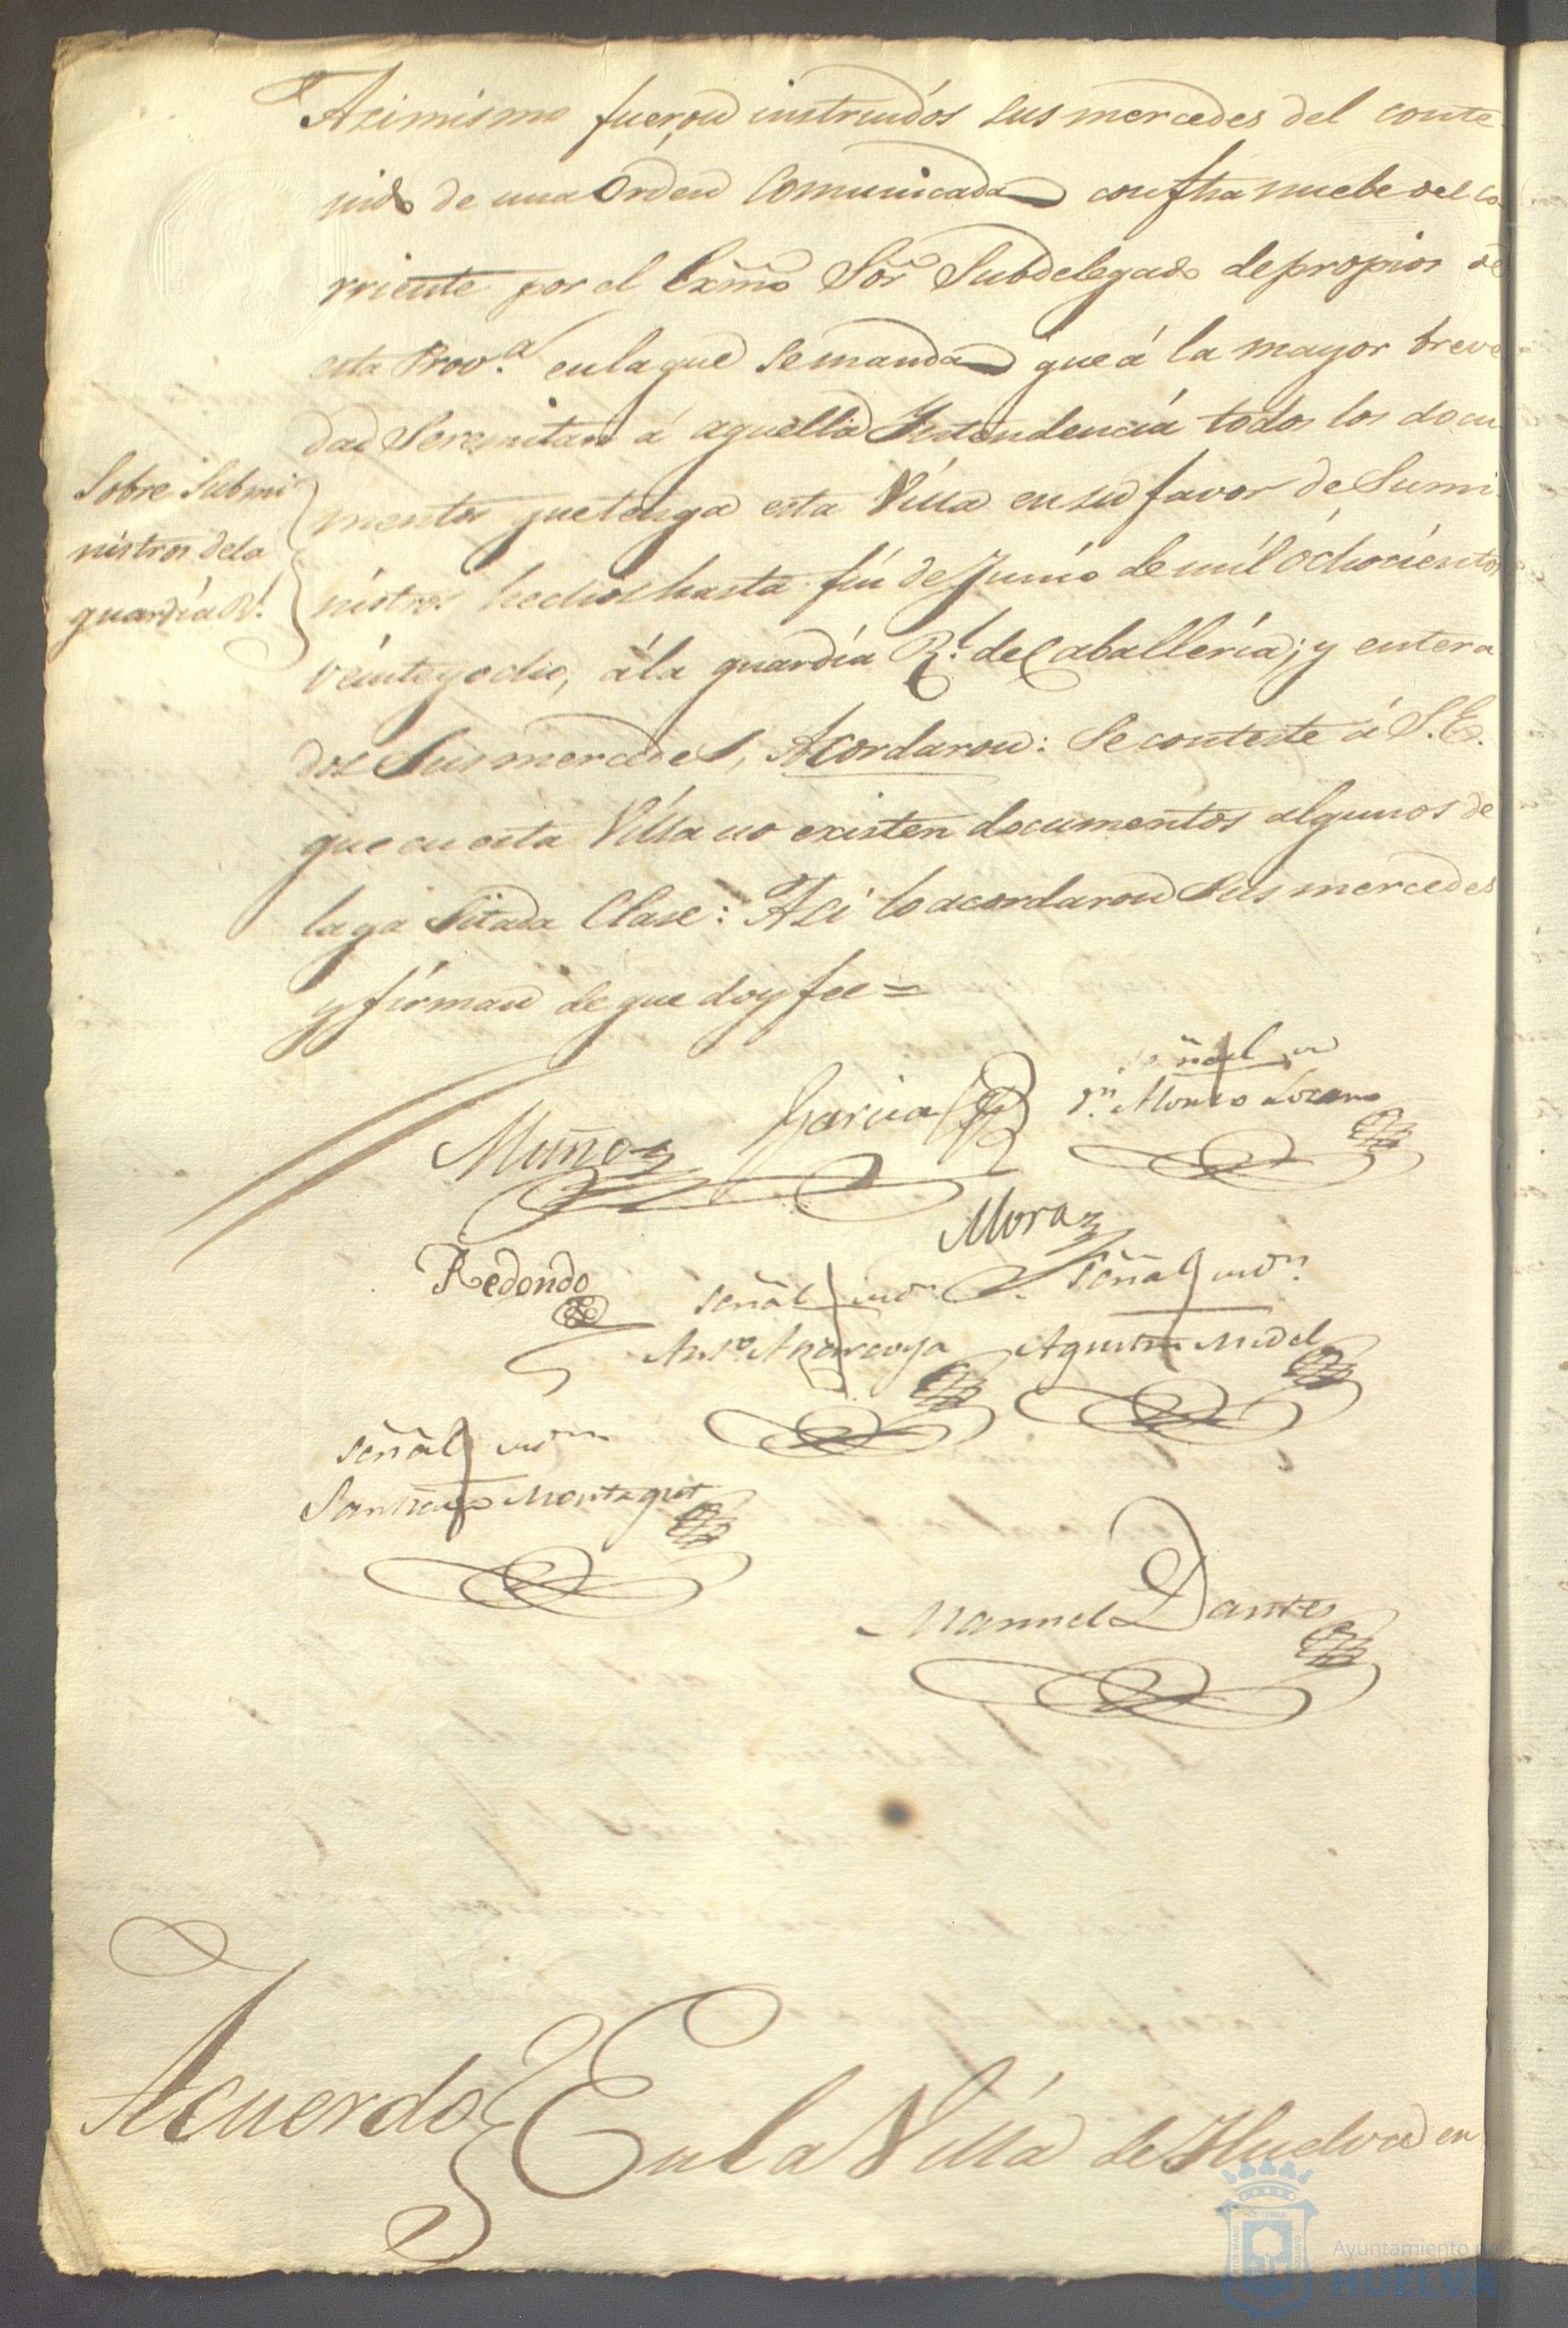 Asimismo fueron instruidos sus mercedes del conte
nido de una Orden Comunicada con fha nuebe del co
rriente por el Exmo Sor Subdelegado de propios de
esta Prov.a en la que se manda que á la mayor breve
dad Se remitan á aquella Yntendencia todos los docu
Sobre Submi
nistros de la
guardia Rl.
mentos que tenga esta Villa en su favor de Sumi
nistros hechos hasta fin de Junio de mil Ochocientos
veinte y ocho, á la guardia Rl. de Caballería; y entera
dos Sus mercedes, Acordaron: Se conteste á S.E.
que en esta Villa no existen documentos algunos de
la ya Sitada Clase: Asi lo acordaron Sus mercedes
y firman de que doy fee =
Muñoz
Garcia
Señal
Dn. Alonso Lozano
Redondo
Mora
Señal
Señal
Agustin Midel
Señal
Santiago Montagut
Manuel Dantes
Acuerdo
En la Villa de Huelva en
Ayuntamiento de
HUELVA